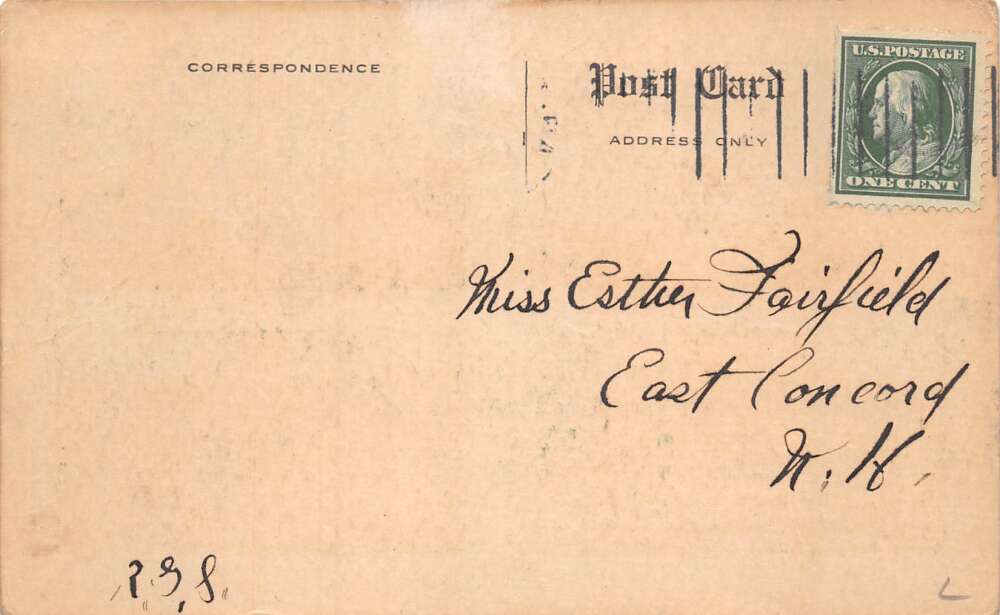 CORRESPONDENCE
Post Card
ADDRESS ONLY
U.S. POSTAGE
ONE CENT
Miss Esther Fairfield
East Concord
N. H.